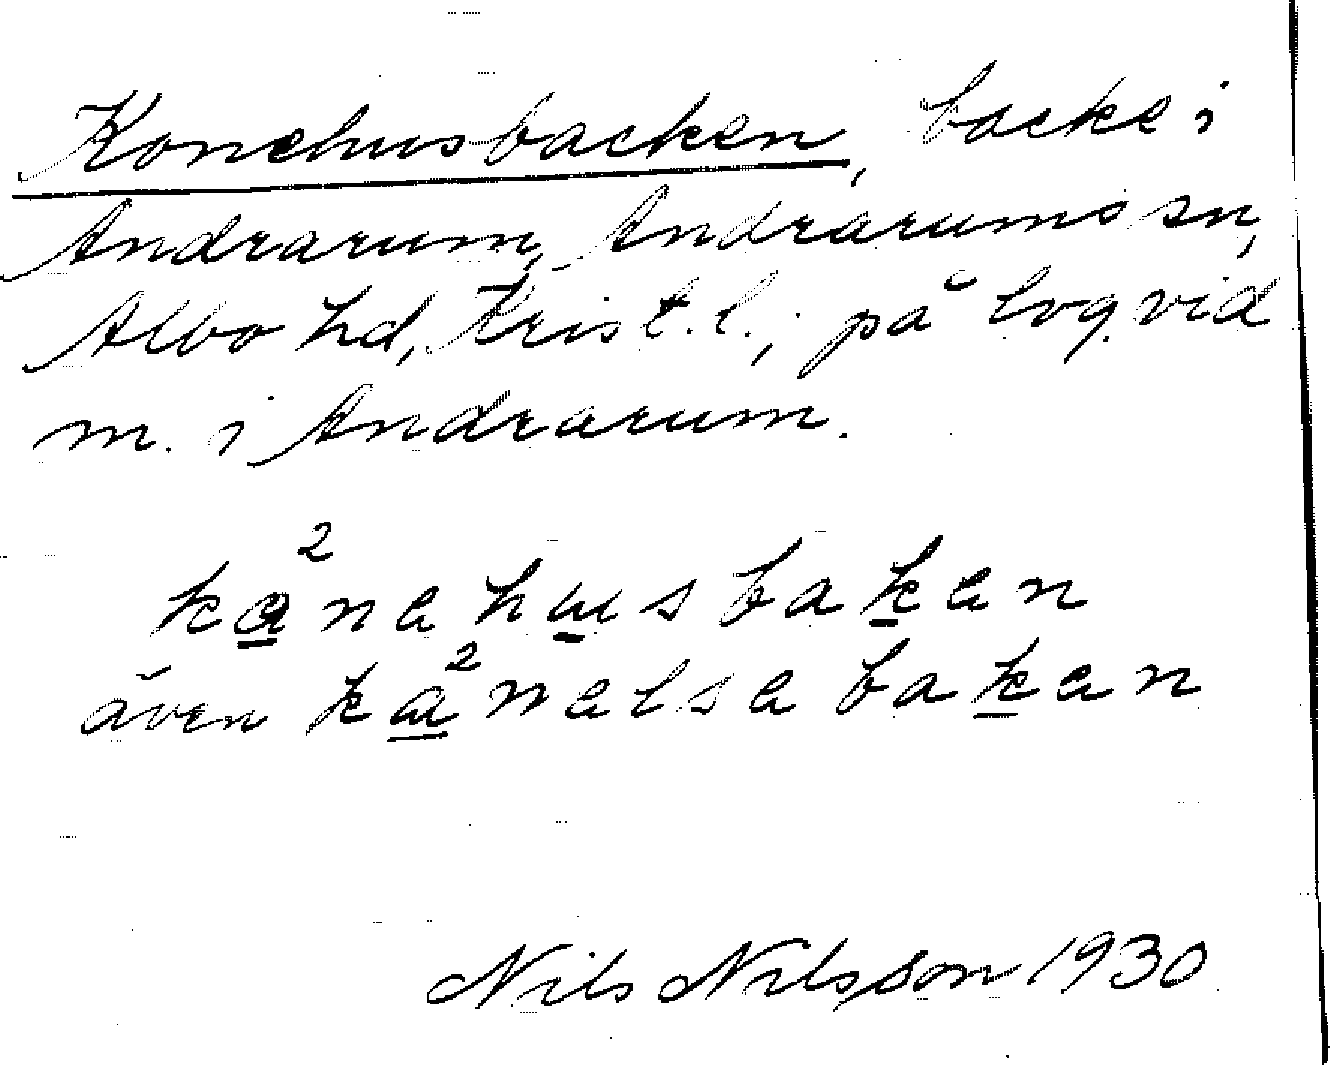 Konehusbacken, backe i
Andrarum, Andrarums sn,
Albo hd, Krist. l.; på lvg. vid
m. i Andrarum.
ka²nahusbakan
även ka²nalsabakan
Nils Nilsson 1930